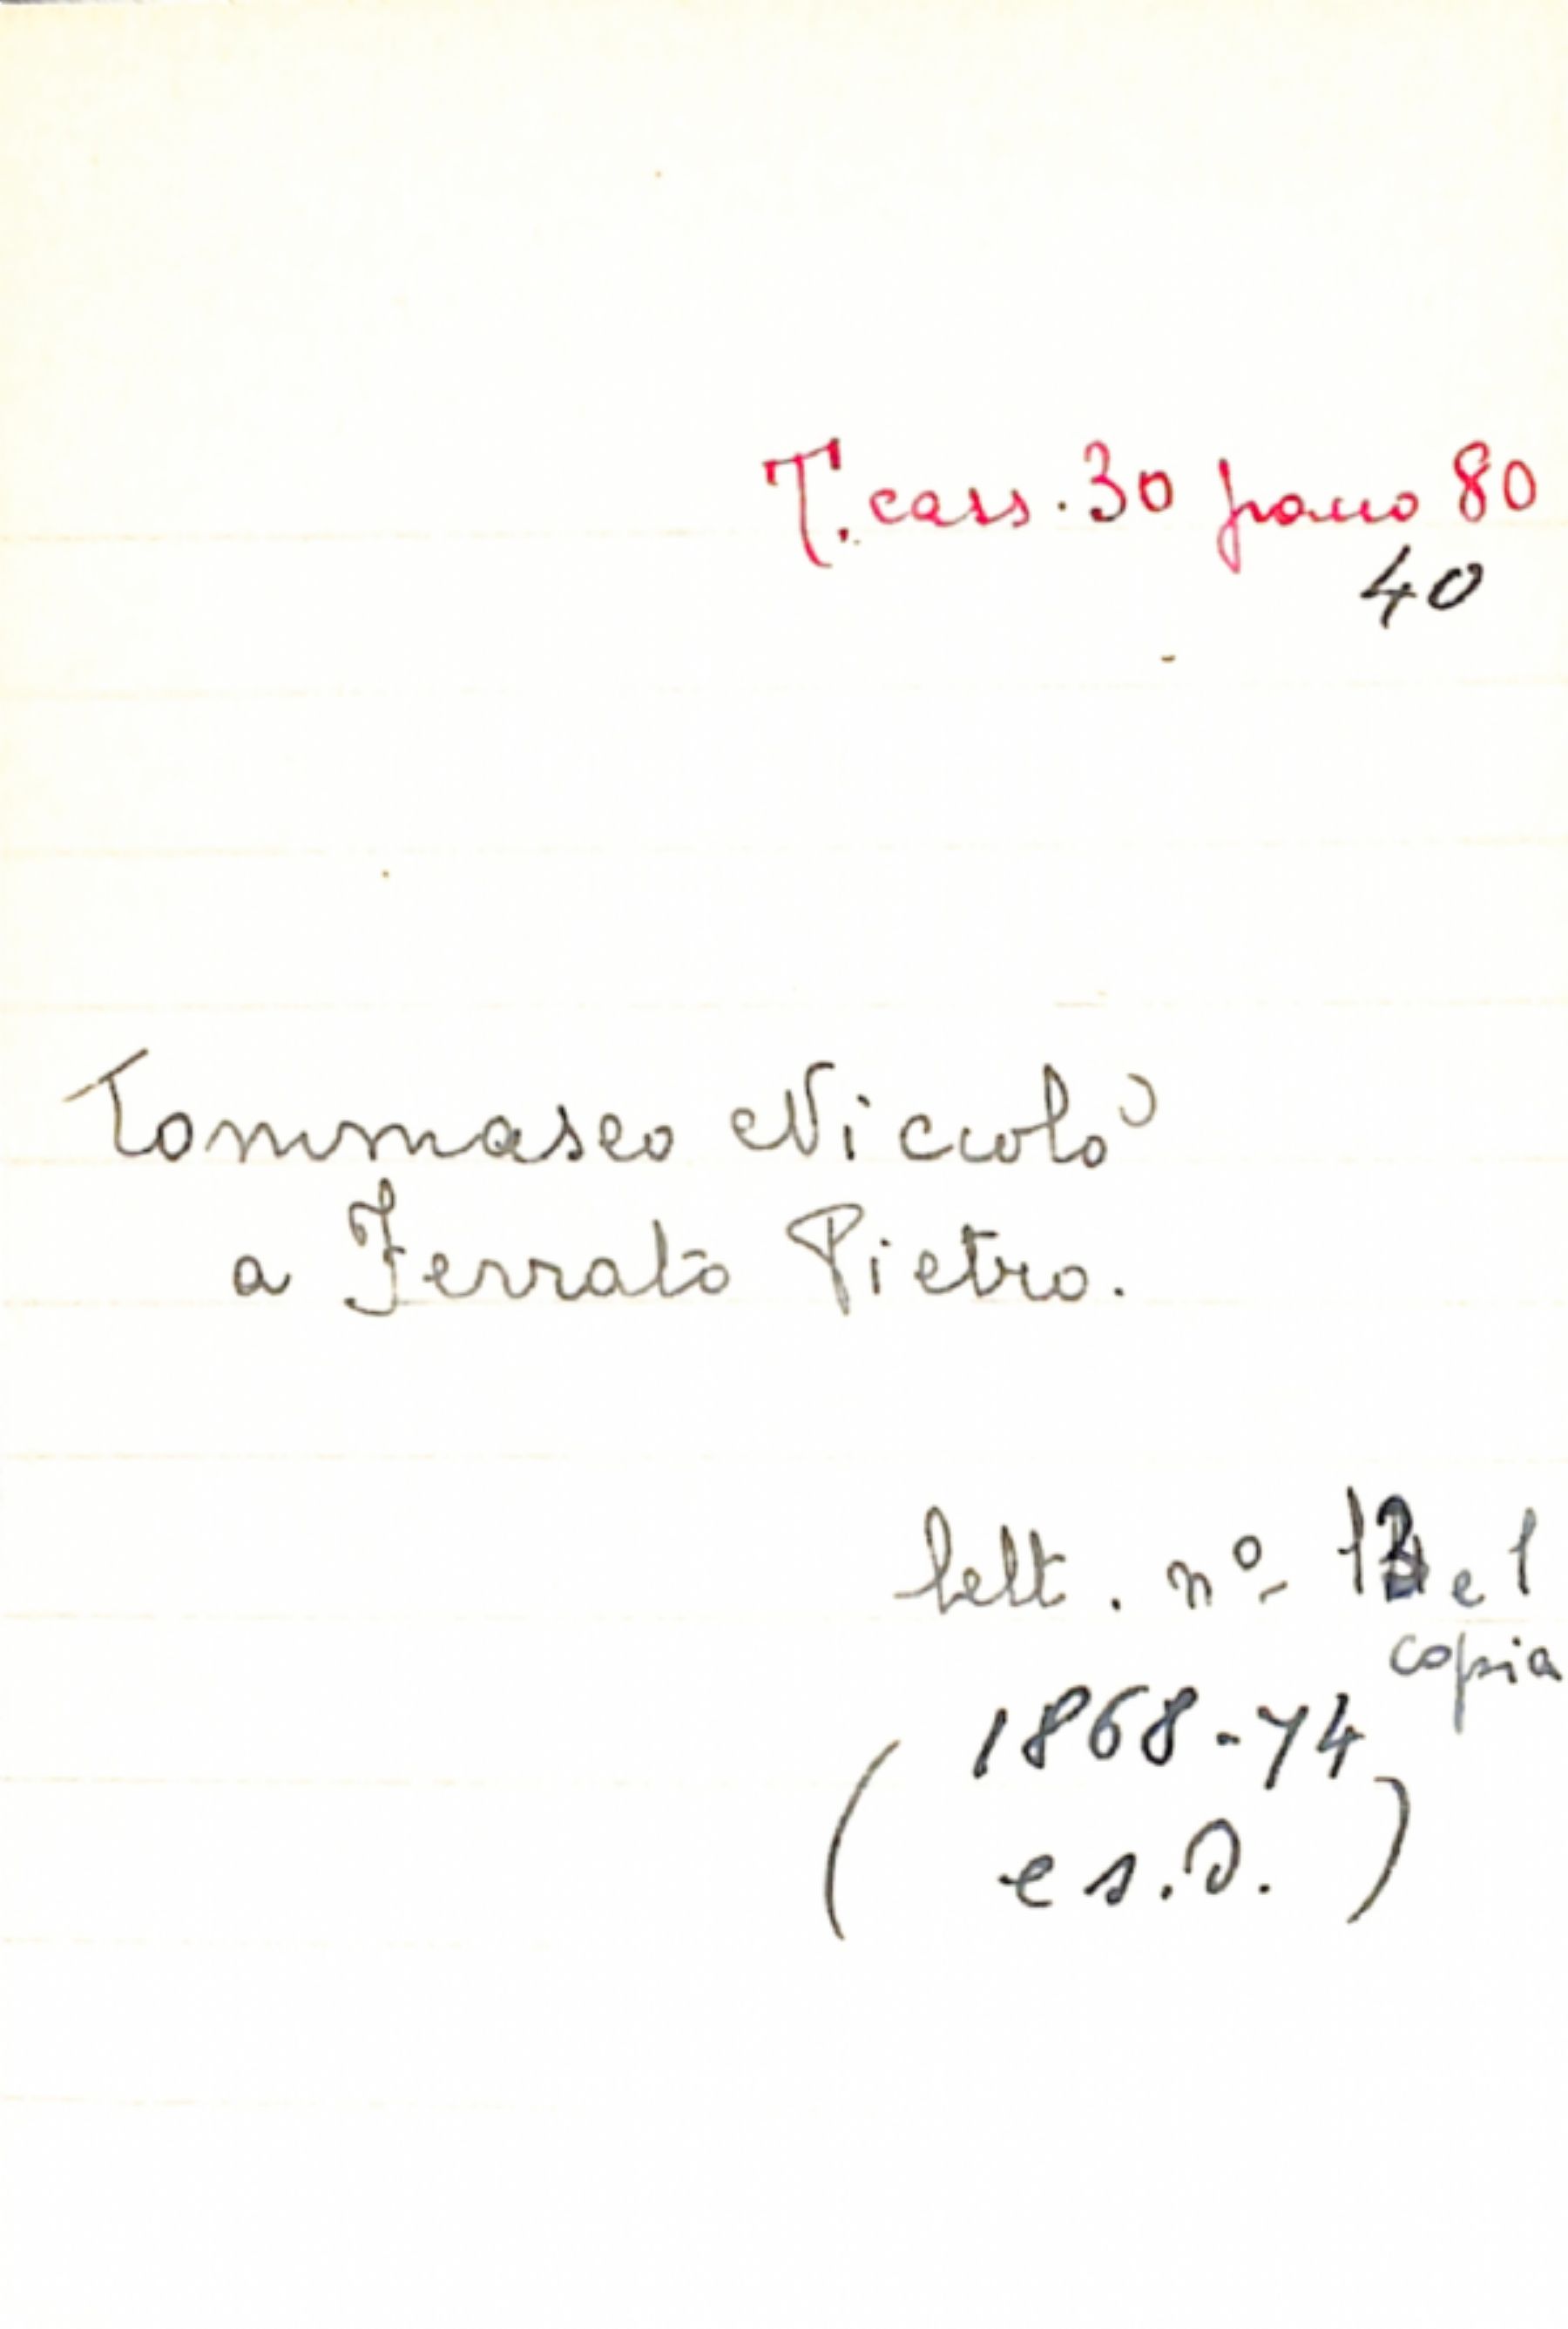 T. cass. 30 pacco 80
40
Tommaseo Niccolò
a Ferrato Pietro.
lett. nº e 1
copia
1868-74
( e s.d. )